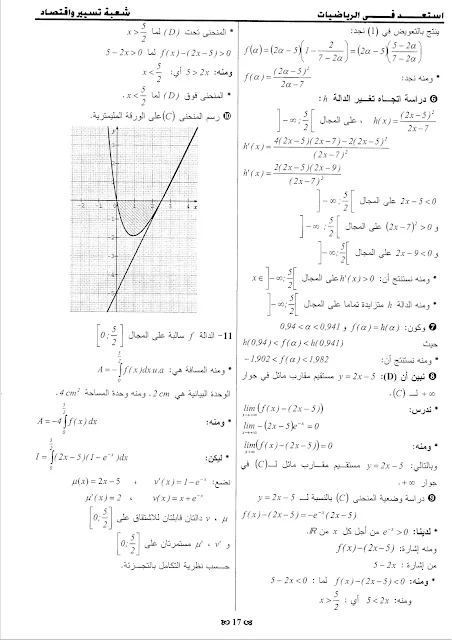 استعد فى الرياضيات
شعبة تسيير واقتصاد
ينتج بالتعويض في (1) نجد:
f(α) = (2α − 5)(1 − 2/(7 − 2α)) = (2α − 5)((5 − 2α)/(7 − 2α))
* ومنه نجد: f(α) = (2α − 5)²/(2α − 7)
❻ دراسة اتجاه تغير الدالة h:
h(x) = (2x − 5)²/(2x − 7) ، على المجال ]−∞ ; 5/2[
h'(x) = (4(2x − 5)(2x − 7) − 2(2x − 5)²)/(2x − 7)²
h'(x) = 2(2x − 5)(2x − 9)/(2x − 7)²
2x − 5 < 0 على المجال ]−∞ ; 5/2[
و (2x − 7)² > 0 على المجال ]−∞ ; 5/2[
و 2x − 9 < 0 على المجال ]−∞ ; 5/2[
* ومنه نستنتج أن: h'(x) > 0 على المجال x ∈ ]−∞ ; 5/2[
* ومنه الدالة h متزايدة تماما على المجال ]−∞ ; 5/2[
❼ وكون: f(α) = h(α) و 0,94 < α < 0,941
حيث h(0,94) < f(α) < h(0,941)
* ومنه نستنتج أن: −1,902 < f(α) < 1,982
❽ نبين أن (D): y = 2x − 5 مستقيم مقارب مائل في جوار
+∞ لـ (C).
* ندرس: lim (f(x) − (2x − 5))
x→+∞
lim − (2x − 5)e⁻ˣ = 0
x→+∞
* ومنه: lim (f(x) − (2x − 5)) = 0
x→+∞
وبالتالي: y = 2x − 5 مستقيم مقارب مائل لـ (C) في
جوار +∞.
❾ دراسة وضعية المنحنى (C) بالنسبة لـ y = 2x − 5
f(x) − (2x − 5) = −e⁻ˣ(2x − 5)
* لدينا: e⁻ˣ > 0 من أجل كل x من IR.
ومنه إشارة: f(x) − (2x − 5)
من إشارة: 5 − 2x
* ومنه: f(x) − (2x − 5) < 0 لما : 5 − 2x < 0
ومنه: 5 < 2x أي : x > 5/2
* المنحنى تحت (D) لما x > 5/2
f(x) − (2x − 5) > 0 لما 5 − 2x > 0
ومنه: 5 > 2x أي: x < 5/2
* المنحنى فوق (D) لما x < 5/2 .
❿ رسم المنحنى (C) على الورقة المليمترية.
11- الدالة f سالبة على المجال [0 ; 5/2]
* ومنه المسافة هي: A = −∫₀^(5/2) f(x)dx u.a
الوحدة البيانية هي 2 cm. ومنه وحدة المساحة 4 cm².
* ومنه: A = −4∫₀^(5/2) f(x)dx
* ليكن: I = ∫₀^(5/2) (2x − 5)(1 − e⁻ˣ)dx
نضع: v'(x) = 1 − e⁻ˣ ، μ(x) = 2x − 5
v(x) = x + e⁻ˣ ، μ'(x) = 2
μ ، v دالتان قابلتان للاشتقاق على [0 ; 5/2]
و μ' ، v' مستمرتان على [0 ; 5/2]
حسب نظرية التكامل بالتجزئة.
17